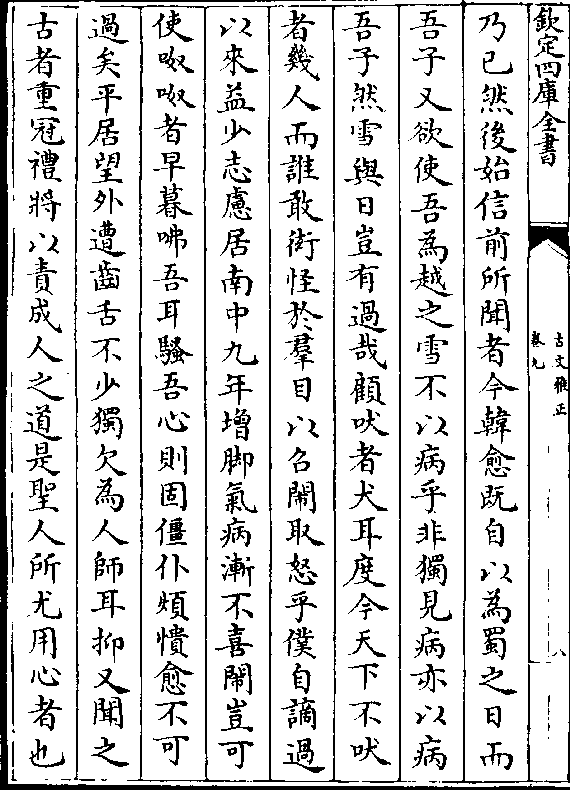 欽定四庫全書
古文雅正
卷九
八
乃已然後始信前所聞者今韓愈既自以為蜀之日而
吾子又欲使吾為越之雪不以病乎非獨見病亦以病
吾子然雪與日豈有過哉顧吠者犬耳度今天下不吠
者幾人而誰敢衒怪於羣目以召鬧取怒乎僕自謫過
以來益少志慮居南中九年增脚氣病漸不喜鬧豈可
使呶呶者早暮咈吾耳騷吾心則固僵仆煩憒愈不可
過矣平居望外遭齒舌不少獨欠為人師耳抑又聞之
古者重冠禮將以責成人之道是聖人所尤用心者也